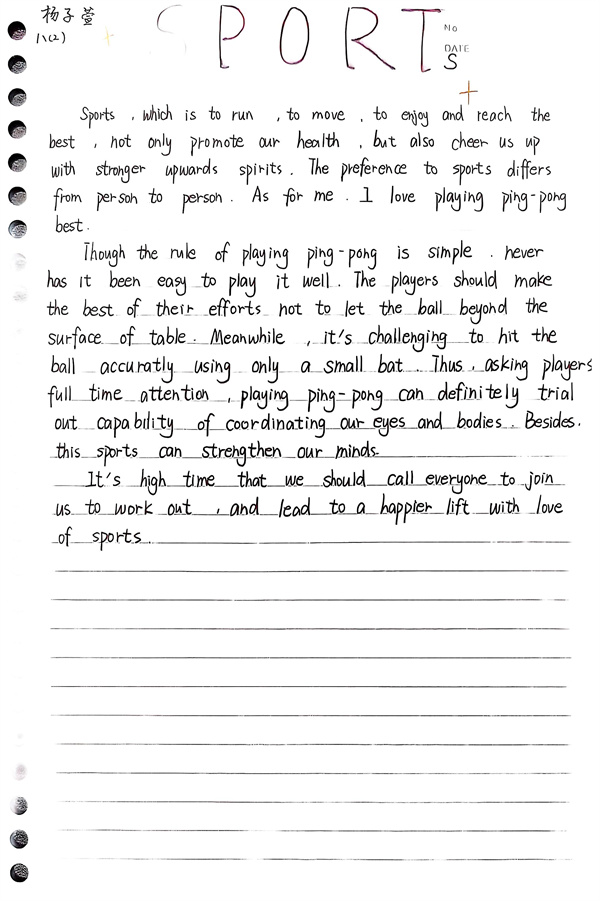 杨子萱
八(2)
SPORTS
NO
DATE
Sports , which is to run , to move , to enjoy and reach the
best , not only promote our health , but also cheer us up
with stronger upwards spirits . The preference to sports differs
from person to person . As for me . I love playing ping-pong
best .
Though the rule of playing ping-pong is simple . never
has it been easy to play it well . The players should make
the best of their efforts not to let the ball beyond the
surface of table . Meanwhile , it's challenging to hit the
ball accuratly using only a small bat . Thus , asking players
full time attention , playing ping-pong can definitely trial
out capability of coordinating our eyes and bodies . Besides .
this sports can strengthen our minds .
It's high time that we should call everyone to join
us to work out , and lead to a happier lift with love
of sports .